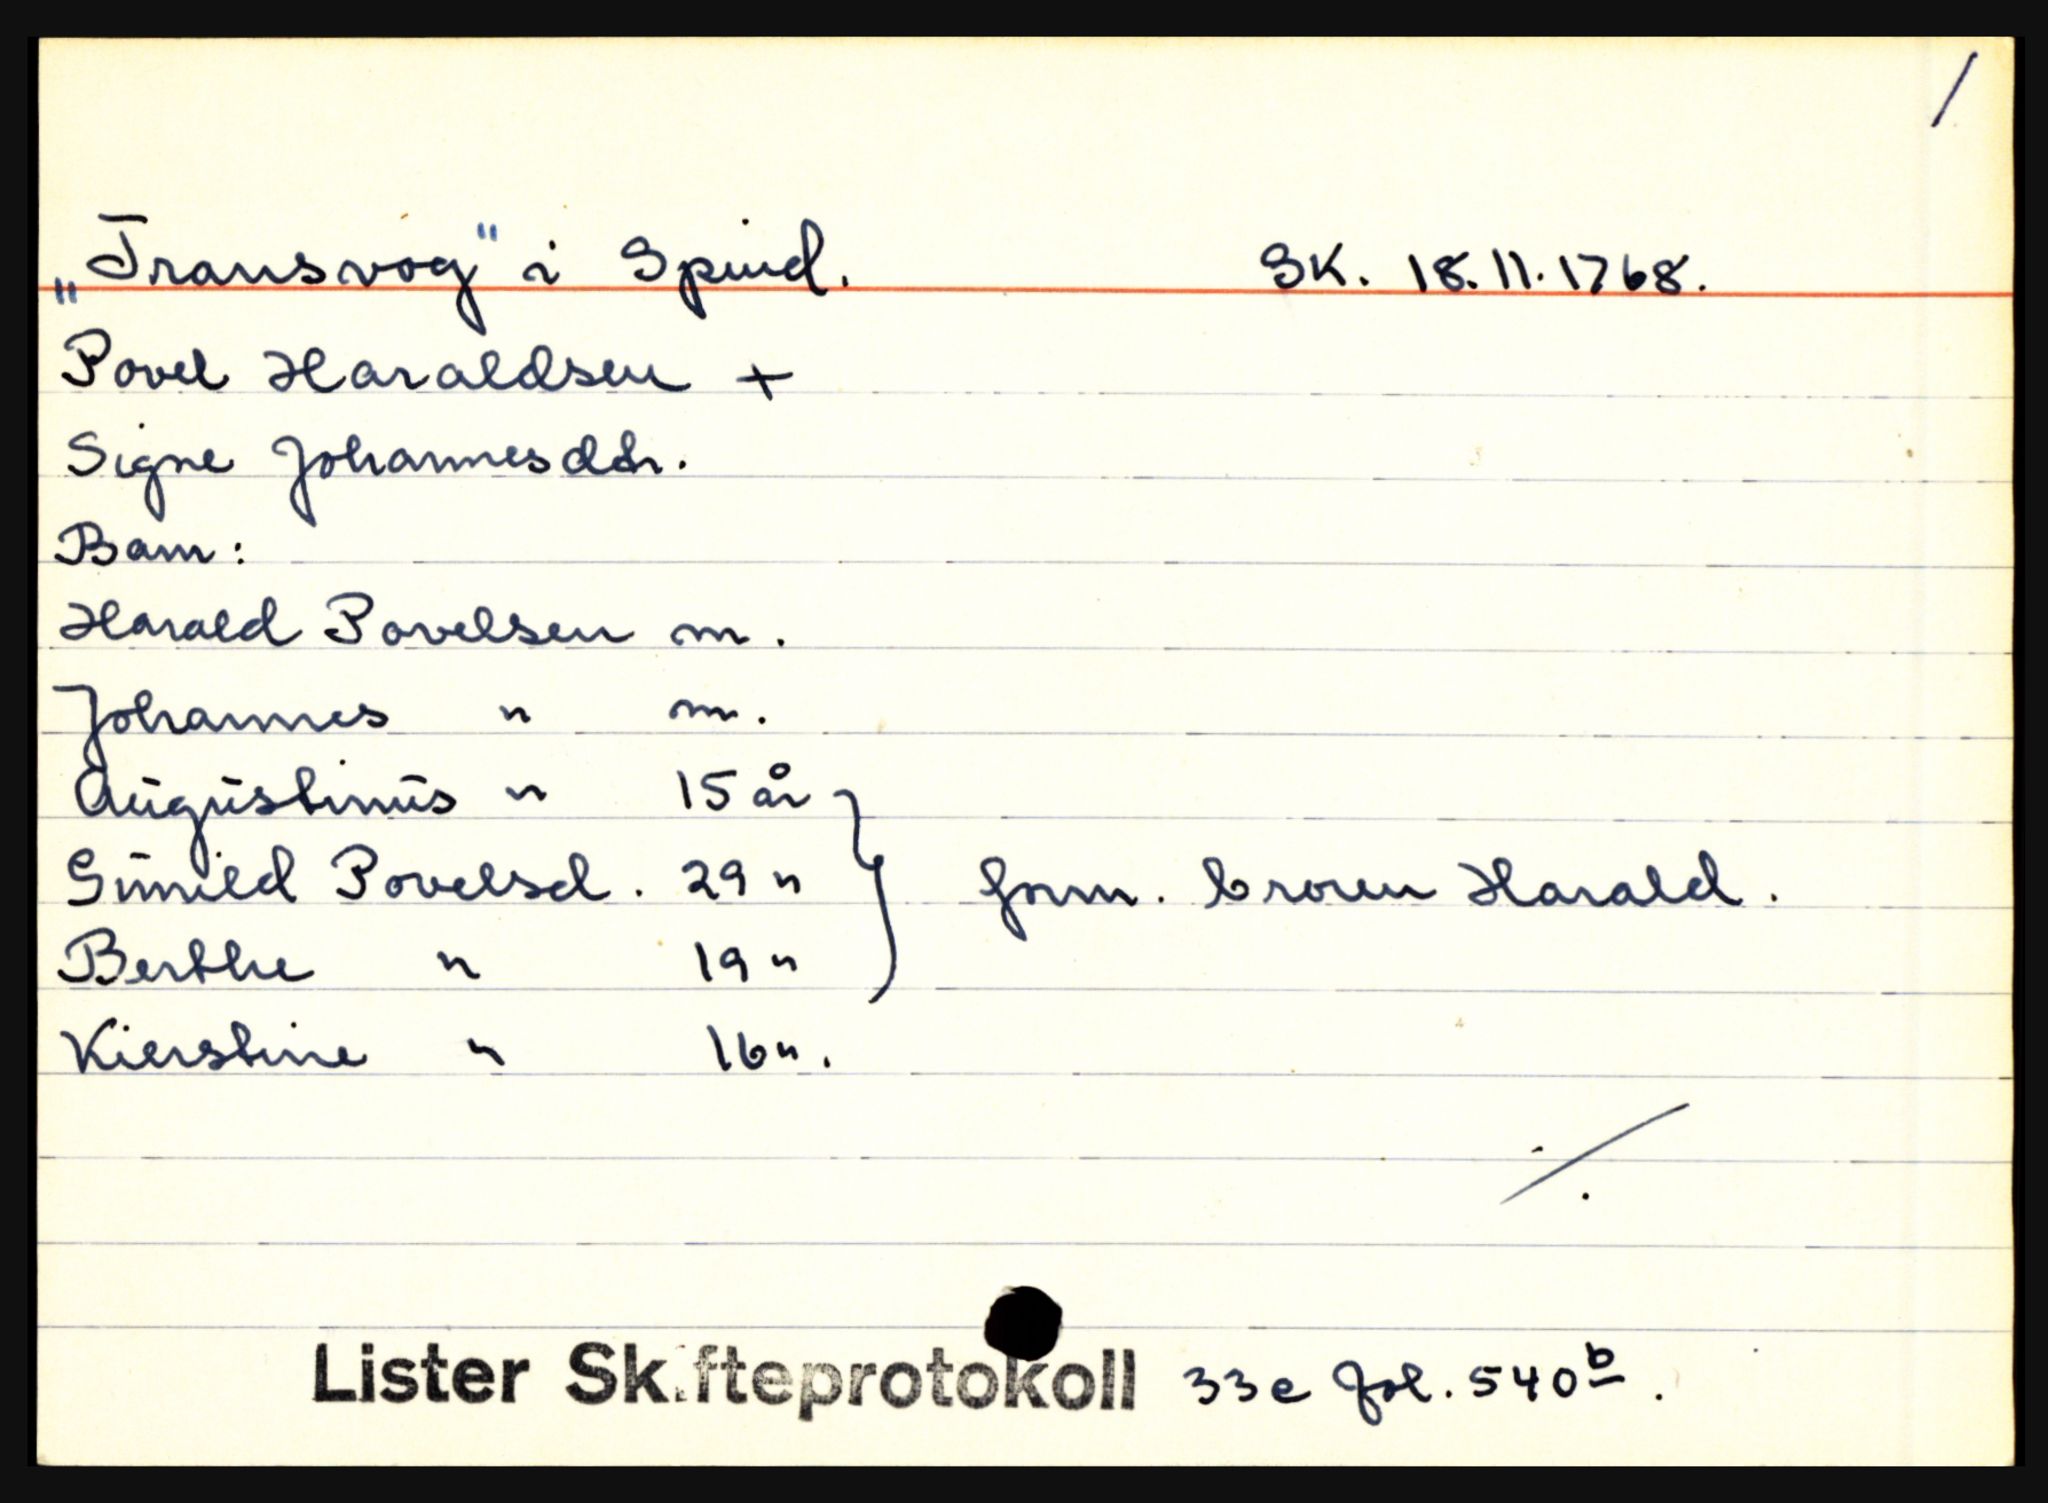 /
„Transvog" i Spind. SK. 18.11.1768.
Povel Haraldsen +
Signe Johannesdtr.
Barn:
Harald Povelsen m.
Johannes " m.
Augustinus " 15 år
Gunild Povelsd. 29 " } form. broren Harald.
Berthe " 19 "
Kierstine " 16 ".
Lister Skifteprotokoll 33c fol. 540b.